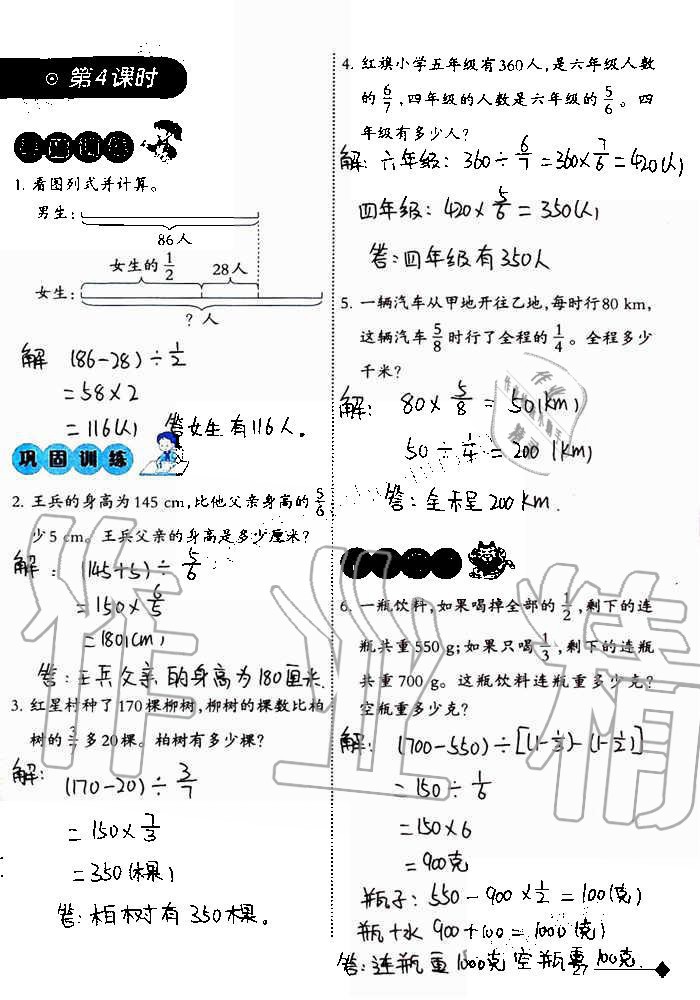 第4课时
基础训练
1. 看图列式并计算。
男生:
86人
女生的1/2 28人
女生:
? 人
解 (86-28)÷1/2
=58×2
=116(人) 答女生有116人.
巩固训练
2. 王兵的身高为145 cm,比他父亲身高的5/6
少5 cm。王兵父亲的身高是多少厘米?
解: (145+5)÷5/6
=150×6/5
=180(cm)
答:王兵父亲的身高为180厘米.
3. 红星村种了170棵柳树,柳树的棵数比柏
树的3/7多20棵。柏树有多少棵?
解: (170-20)÷3/7
=150×7/3
=350(棵)
答:柏树有350棵。
4. 红旗小学五年级有360人,是六年级人数
的6/7,四年级的人数是六年级的5/6。四
年级有多少人?
解:六年级:360÷6/7=360×7/6=420(人)
四年级:420×5/6=350(人)
答:四年级有350人
5. 一辆汽车从甲地开往乙地,每时行80 km,
这辆汽车5/8时行了全程的1/4。全程多少
千米?
解: 80×5/8=50(km)
50÷1/4=200(km)
答:全程200km.
6. 一瓶饮料,如果喝掉全部的1/2,剩下的连
瓶共重550 g;如果只喝1/3,剩下的连瓶
共重700 g。这瓶饮料连瓶重多少克?
空瓶重多少克?
解: (700-550)÷[(1-1/3)-(1-1/2)]
=150÷1/6
=150×6
=900克
瓶子:550-900×1/2=100(克)
瓶+水 900+100=1000(克)
答:连瓶重1000克空瓶重100克
27
作业精